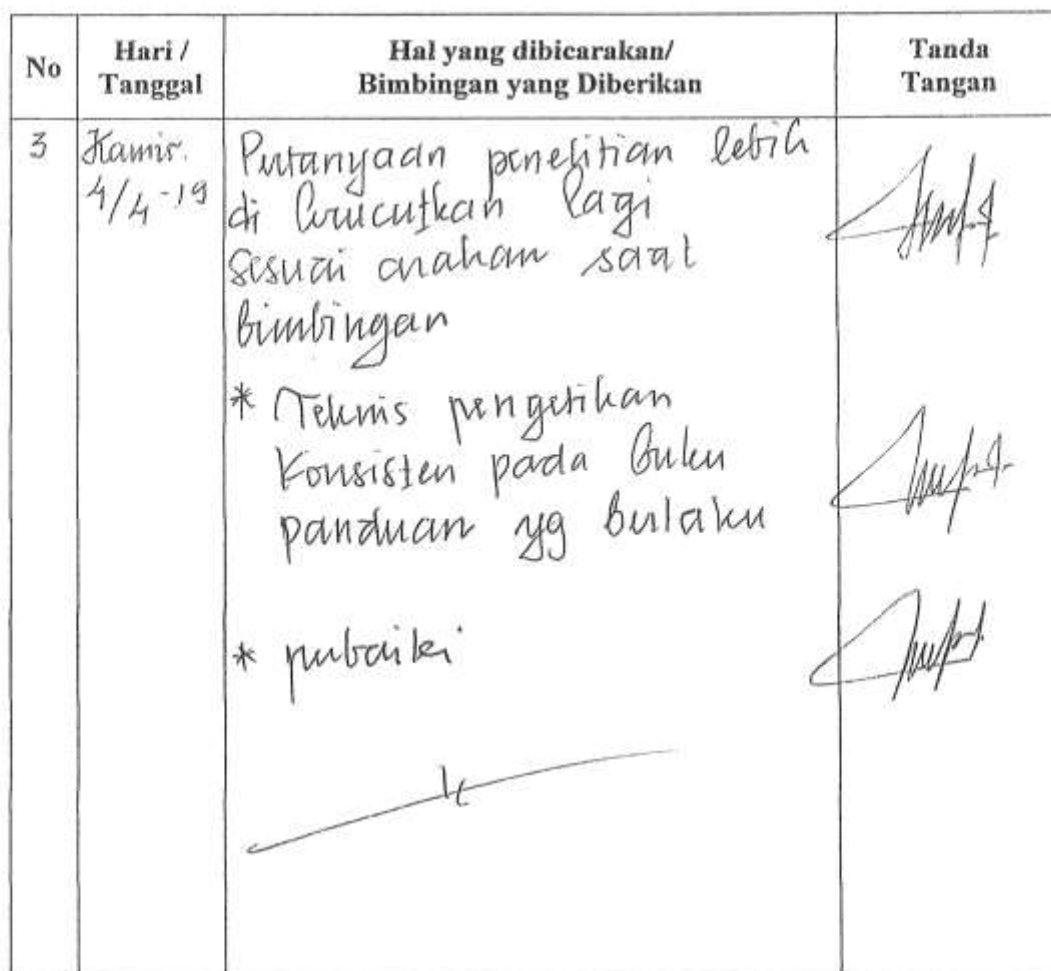 No
Hari /
Tanggal
Hal yang dibicarakan/
Bimbingan yang Diberikan
Tanda
Tangan
3
Kamis.
4/4-19
Pertanyaan penelitian lebih
di kerucutkan lagi
sesuai arahan saat
bimbingan
* Teknis pengetikan
Konsisten pada buku
panduan yg berlaku
* perbaiki